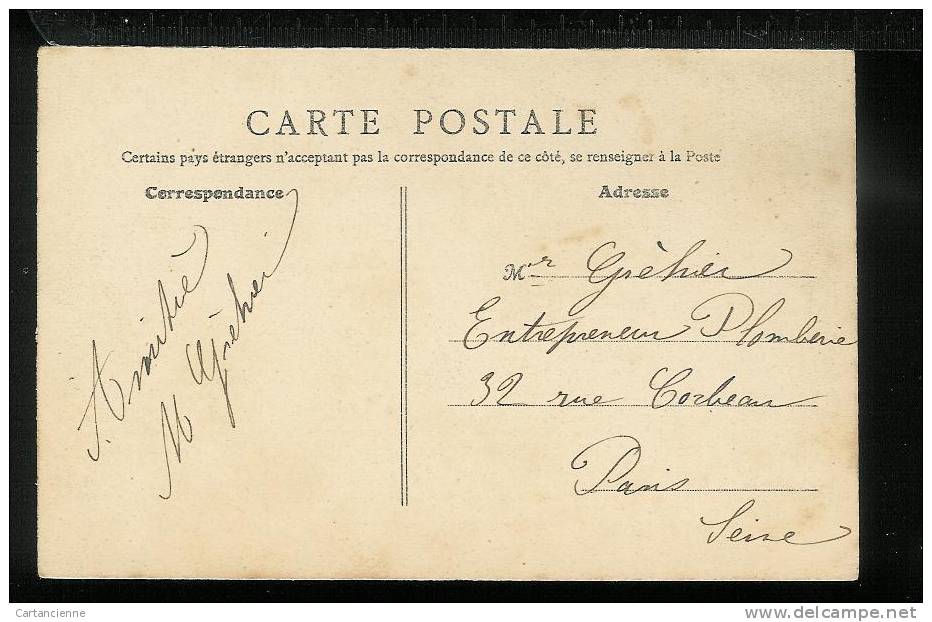 CARTE POSTALE
Certains pays étrangers n'acceptant pas la correspondance de ce côté, se renseigner à la Poste
Correspondance
Adresse
Amitié
M Gréhier
Mr Gréhier
Entrepreneur Plomberie
32 rue Corbeau
Paris
Seine
Cartancienne
www.delcampe.net